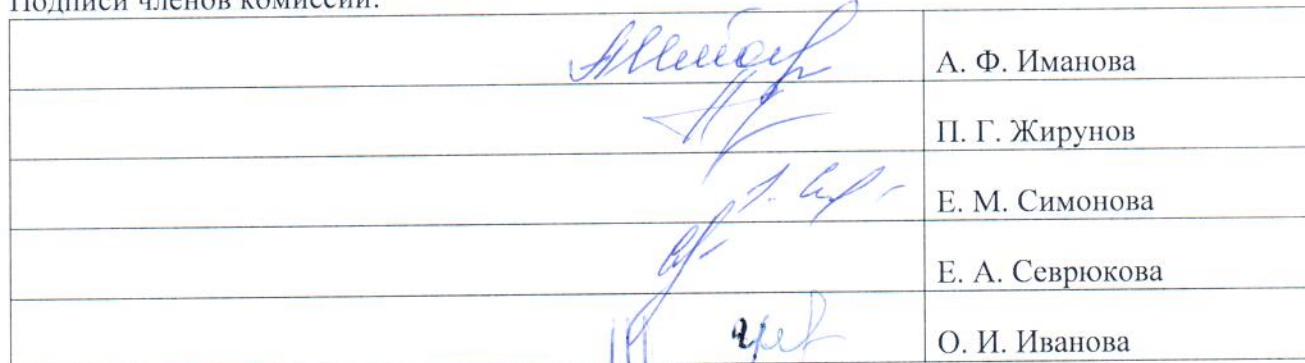 Подписи членов комиссии:
А. Ф. Иманова
П. Г. Жирунов
Е. М. Симонова
Е. А. Севрюкова
О. И. Иванова